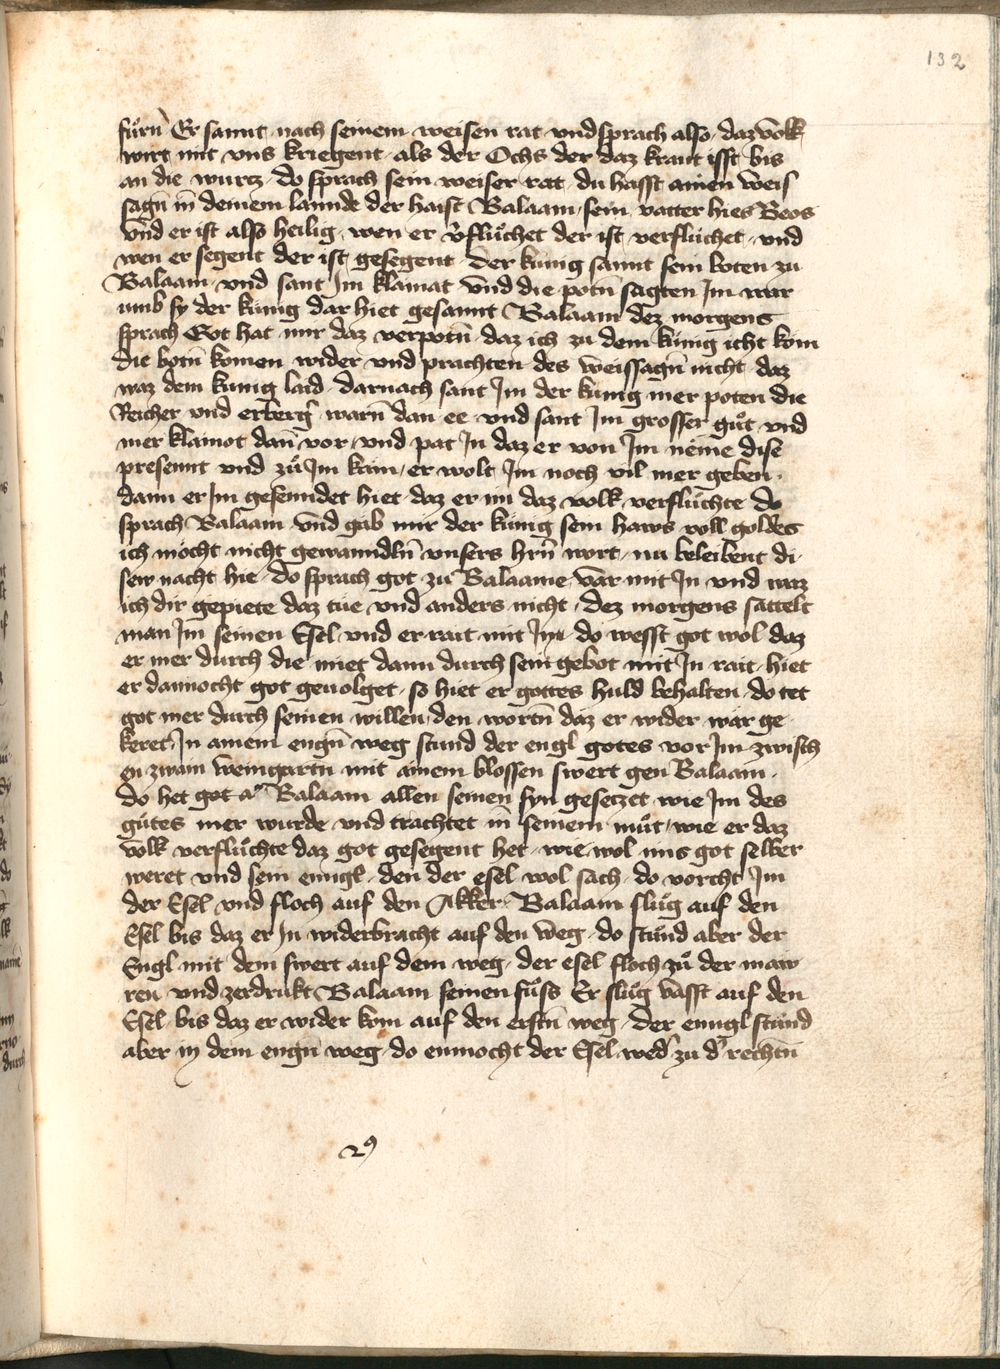 132
fůrn Er sannt nach seinem weisen rat vnd sprach also daz volk
wirt mit vns kriegent als der Ochs der daz kraut isst bis
an die wurcz do sprach sein weiser rat du hasst ainen weis
sagn̄ in deinem lannde der haist Balaam sein vatter hies Beos
vnd er ist also heilig wen er v̓flůchet der ist verflůchet vnd
wen er segent der ist gesegent der kunig sannt sein boten zu
Balaam vnd sant Im klainat vnd die potn̄ sagten Im war
umb sy der kunig dar hiet gesannt Balaam dez morgens
sprach Got hat mir daz verpotn̄ daz ich zu dem kunig icht kom
die botn̄ komen wider vnd prachten des weissagn̄ nicht daz
waz dem kunig laid darnach sant Im der kunig mer poten die
Reicher vnd erberg̓ warn̄ dan ee vnd sant Im grosser gůt vnd
mer klainot dan̄ vor vnd pat In daz er von Im neme dise
presennt vnd zů Im kam er wolt Im noch vil mer geben
dann er Im gesenndet hiet daz er im daz volk verflůchte do
sprach Balaam vnd gäb mir der kunig sein haws voll goldes
ich möcht nicht gewanndln̄ vnsers hrn̄ wort nu beleibent di
sew nacht hie do sprach got zu Balaame var mit In vnd waz
ich dir gepiete daz tůe vnd anders nicht dez morgens sattelt
man Im seinen Esel vnd er rait mit Iñ do wesst got wol daz
er mer durch die miet dann durch sein gebot mit In rait hiet
er dannocht got geuolget so hiet er gottes huld behalten do tet
got mer durch seinen willen den wortn̄ daz er wider wär ge
keret In ainem engn̄ weg stund der engl gotes vor Im zwisch
en zwain weingartn̄ mit ainem blossen swert gen Balaam
do het got Balaam allen seinen syn gesetzet wie Im des
gůtes mer wurde vnd trachtet in seinem můt wie er daz
volk verflůchte daz got gesegent het wie wol ims got selber
weret vnd sein enngl den der esel wol sach do vorcht Im
der Esel vnd floch auf den Akker Balaam slůg auf den
Esel bis daz er In widerbracht auf den weg do stůnd aber der
Engl mit dem swert auf dem weg der esel floch zů der maw
ren vnd zerdrukt Balaam seinen fůss Er slůg vasst auf den
Esel bis daz er wider kom auf den erstn̄ weg der enngl stůnd
aber in dem engn̄ weg do enmocht der Esel wed̓ zu d̓ rechtn̄